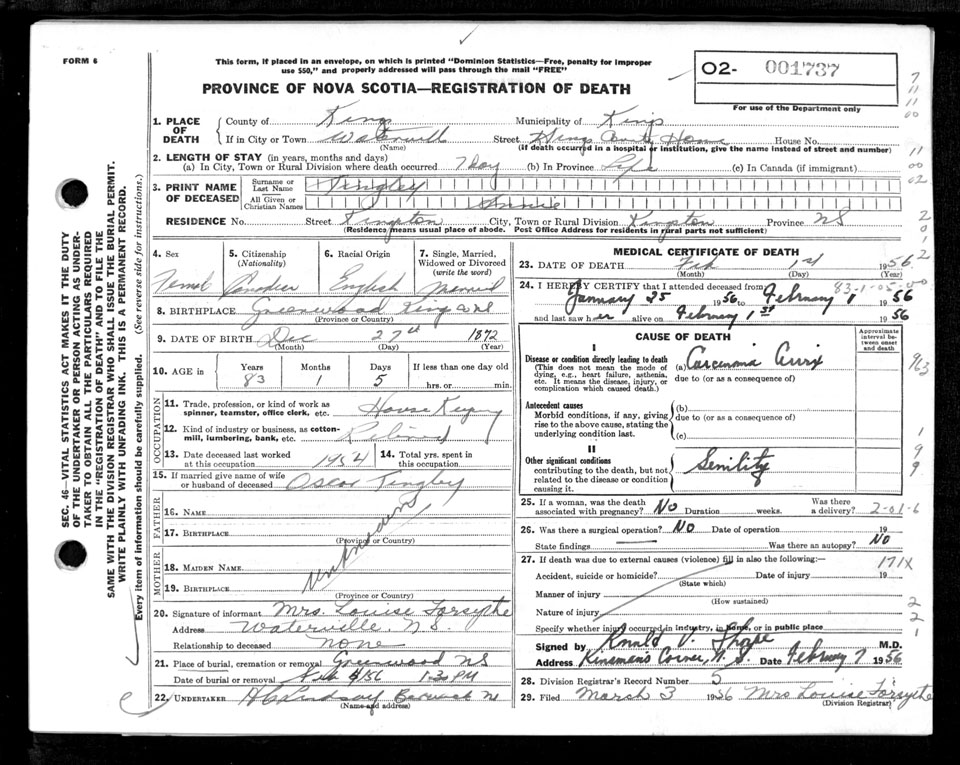 FORM 6
This form, if placed in an envelope, on which is printed "Dominion Statistics—Free, penalty for improper
use $50," and properly addressed will pass through the mail "FREE"
02- 001737
PROVINCE OF NOVA SCOTIA—REGISTRATION OF DEATH
For use of the Department only
1. PLACE OF DEATH
County of Kings Municipality of Kings
If in City or Town Waterville Street Kings County Home House No.
(Name) (If death occurred in a hospital or institution, give the name instead of street and number)
2. LENGTH OF STAY (in years, months and days)
(a) In City, Town or Rural Division where death occurred 7 Day (b) In Province Life (c) In Canada (if immigrant)
3. PRINT NAME OF DECEASED
Surname or Last Name Tingley
All Given or Christian Names Annie
RESIDENCE No. Street Kingston City, Town or Rural Division Kingston Province NS
(Residency means usual place of abode. Post Office Address for residents in rural parts not sufficient)
4. Sex 5. Citizenship (Nationality) 6. Racial Origin 7. Single, Married, Widowed or Divorced (write the word)
Canadian English Married
8. BIRTHPLACE Greenwood Kings
(Province or Country)
9. DATE OF BIRTH Dec 27th 1872
(Month) (Day) (Year)
10. AGE in Years Months Days If less than one day
83 1 5 hrs. or min.
OCCUPATION
11. Trade, profession, or kind of work as spinner, teamster, office clerk, etc. House Keeping
12. Kind of industry or business, as cotton-mill, lumbering, bank, etc. Retired
13. Date deceased last worked at this occupation 1954 14. Total yrs. spent in this occupation
15. If married give name of wife or husband of deceased Oscar Tingley
FATHER
16. NAME
17. BIRTHPLACE
(Province or Country)
unknown
MOTHER
18. MAIDEN NAME
19. BIRTHPLACE
(Province or Country)
20. Signature of informant Mrs. Louise Forsythe
Address Waterville, N.S.
Relationship to deceased none
21. Place of burial, cremation or removal Greenwood NS
Date of burial or removal Feb 4/56 1.30 PM
22. UNDERTAKER Lindsay Berwick
(Name and address)
MEDICAL CERTIFICATE OF DEATH
23. DATE OF DEATH Feb 1st 1956
(Month) (Day) (Year)
24. I HEREBY CERTIFY that I attended deceased from 83-1-05-00
January 25 1956 to February 1 1956
and last saw her alive on February 1st 1956
CAUSE OF DEATH
Approximate interval between onset and death
I
Disease or condition directly leading to death (a) Carcinoma Cervix
(This does not mean the mode of dying, e.g., heart failure, asthenia, etc. It means the disease, injury, or complication which caused death.)
due to (or as a consequence of)
Antecedent causes
Morbid conditions, if any, giving rise to the above cause, stating the underlying condition last.
(b)
due to (or as a consequence of)
(c)
II
Other significant conditions
contributing to the death, but not related to the disease or condition causing it.
Senility
25. If a woman, was the death associated with pregnancy? No Duration weeks. Was there a delivery? 2-01-6
26. Was there a surgical operation? No Date of operation 19
State findings Was there an autopsy? No
27. If death was due to external causes (violence) fill in also the following:— 171X
Accident, suicide or homicide? Date of injury 19
(State which)
Manner of injury
(How sustained)
Nature of injury
Specify whether injury occurred in industry, in home, or in public place
Signed by Ronald V. M.D.
Address Kinsman's Corner, N.S. Date February 7 1956
28. Division Registrar's Record Number 5
29. Filed March 3 1956 Mrs Louise Forsythe
(Division Registrar)
SEC. 46—VITAL STATISTICS ACT MAKES IT THE DUTY
OF THE UNDERTAKER OR PERSON ACTING AS UNDER-
TAKER TO OBTAIN ALL THE PARTICULARS REQUIRED
IN THE "REGISTRATION OF DEATH" AND TO FILE THE
SAME WITH THE DIVISION REGISTRAR WHO SHALL ISSUE THE BURIAL PERMIT.
WRITE PLAINLY WITH UNFADING INK. THIS IS A PERMANENT RECORD.
Every item of information should be carefully supplied. (See reverse side for instructions.)